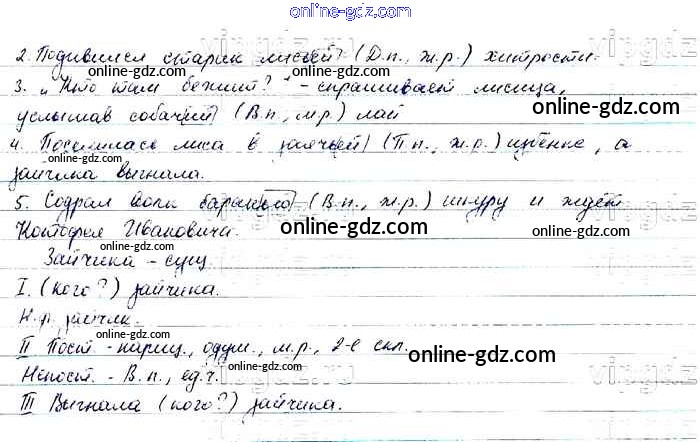 online-gdz.com
2. Подивился старик лисьей (Д.п., ж.р.) хитрости.
online-gdz.com
3. „Кто там бежит?" - спрашивает лисица,
online-gdz.com
услышав собачий (В.п., м.р.) лай online-gdz.com
4. Поселилась лиса в заячьей (П.п., ж.р.) избёнке, а
online-gdz.com online-gdz.com
зайчика выгнала.
5. Содрал волк баранью (В.п., ж.р.) шкуру и ждёт
Котофея Ивановича. online-gdz.com online-gdz.com
online-gdz.com
Зайчика - сущ.
I. (кого?) зайчика. online-gdz.com
Н.ф. зайчик. online-gdz.com
II Пост. - нариц., одуш., м.р., 2-е скл. online-gdz.com
Непост. - В.п., ед.ч. online-gdz.com
III Выгнала (кого?) зайчика.
online-gdz.com